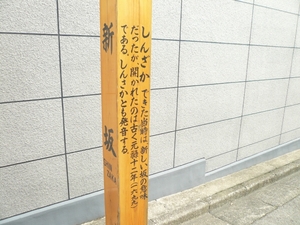 新坂
しんざか できた当時は、新しい坂の意味
だったが、開かれたのは古く元禄十二年(一六九九)
である。しんさかとも発音する。